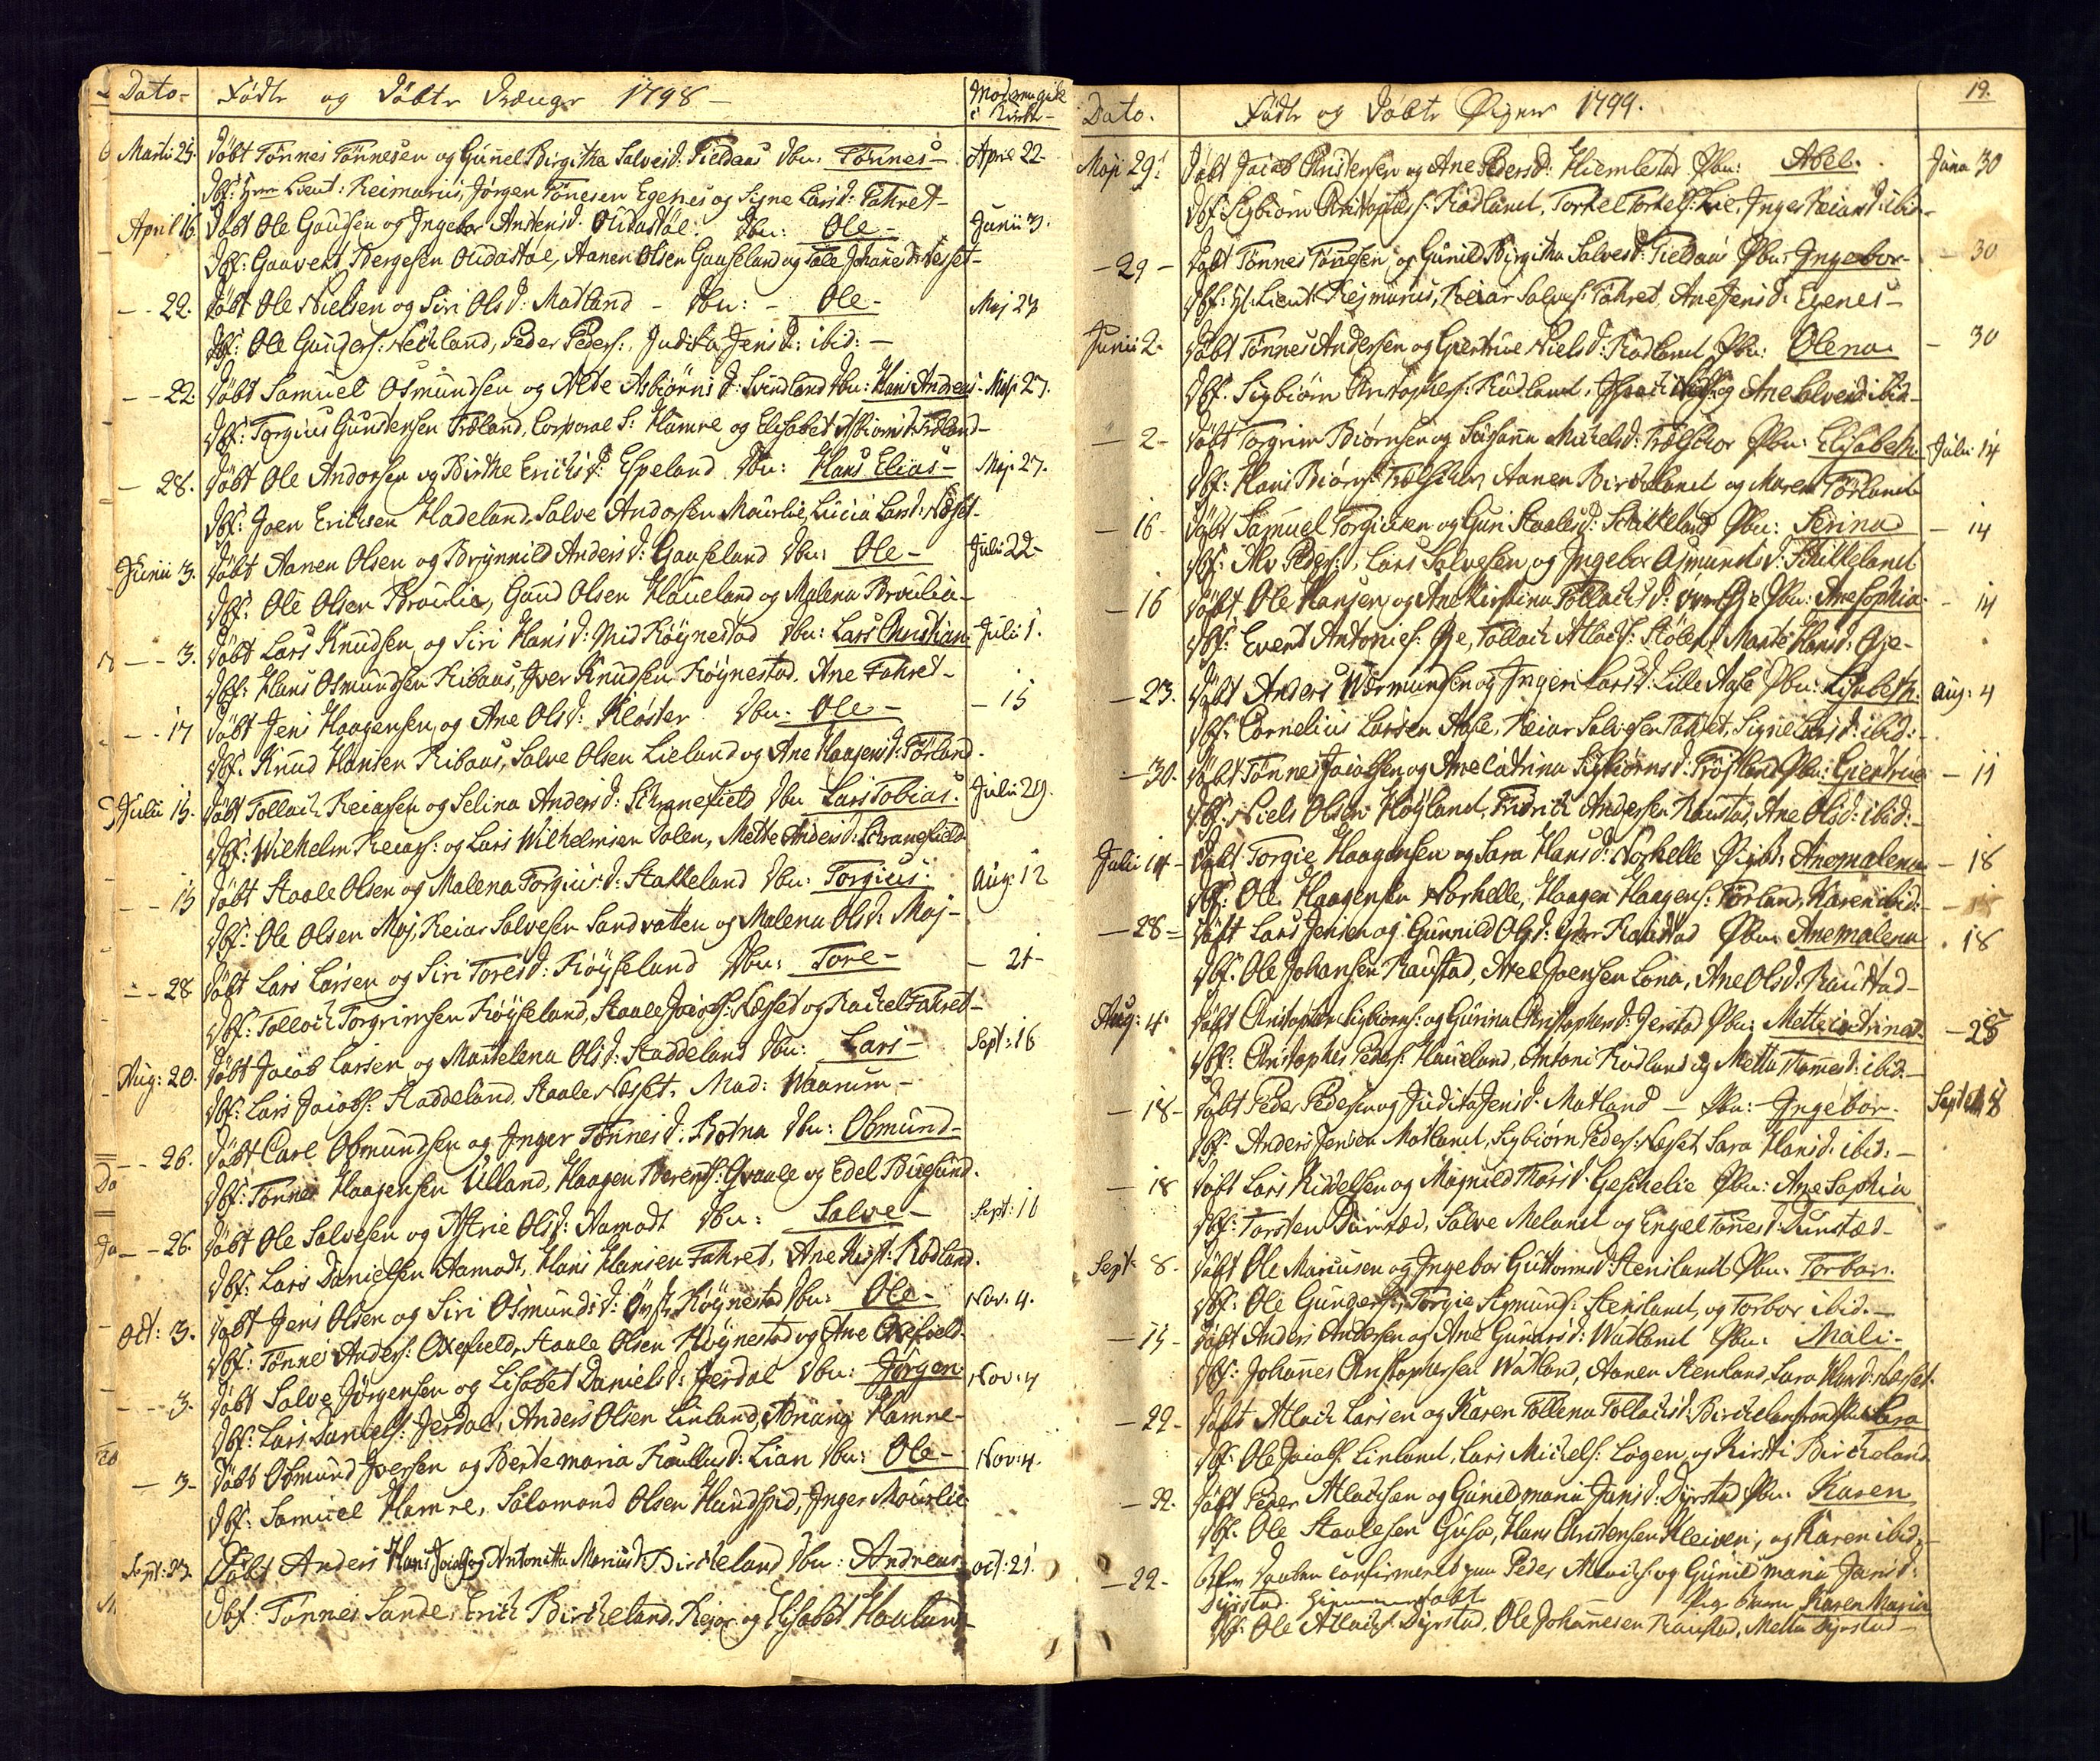 Dato- Födte og Döbte Drænge 1798 - Moderen gik i Kirke-
Martii 25. Döbt Tönnes Tönnesen og Gunnel Birgitha Salvesd: Fieldaas Dbn: Tönnes- April 22-
Dbf: Herr Lieut: Reimarius, Jörgen Tönesen Egenes og Signe Larsd: Fahret-
April 16. Döbt Ole Gausen og Ingebor Andersd: Oudastöl. Dbn: Ole- Junii 3.
Dbf: Gauvend Bergesen Oudastöl, Aanen Olsen Gauseland og Tale Johanesd: Nesset-
- - 22. Döbt Ole Nielsen og Siri Olsd: Matland - Dbn: - Ole- Maj 27
Dbf: Ole Gunders: Neeland, Peder Peders: Judita Jensd: ibid: -
- - 22. Döbt Samuel Osmundsen og Alde Asbiörnsd: Svindland Dbn: Hans Andreas- Maji 27.
Dbf: Torgius Gundersen Træland, Corporal S: Hamre og Elisabet Asbiörnsd: Træland-
- 28. Döbt Ole Andorsen og Birthe Erichsd: Espeland. Dbn: Hans Elias- Maji 27.
Dbf: Joen Erichsen Hadeland, Salve Andorsen Mourlie, Lucia Larsd: Neset-
Junii 3. Döbt Aanen Olsen og Brynnild Andersd: Gauseland Dbn: Ole- Julii 22-
Dbf: Ole Olsen Broulie, Gaud Olsen Haueland og Malena Broulia-
- - 3. Döbt Lars Knudsen og Siri Hansd: Mid Röynestad Dbn: Lars Christian: Julii 1.
Dbf: Hans Osmundsen Ribaas, Iver Knudsen Röynestad, Ane Fahret-
- - 17 Döbt Jens Haagensen og Ane Olsd: Kloster Dbn: Ole- - 15
Dbf: Knud Hansen Ribaas, Salve Olsen Lieland og Ane Haagensd: Förland.
Julii 15. Döbt Tollach Reiarsen og Selina Andersd: Skranefield Dbn: Lars Tobias. Julii 29.
Dbf: Wilhelm Reiars: og Lars Wilhelmsen Dalen, Mette Andersd: Skranefield
- - 15 Döbt Staale Olsen og Malena Torgiusd: Stakkeland Dbn: Torgius: Aug: 12
Dbf: Ole Olsen Moj, Reiar Salvesen Sandvatten og Malena Olsd: Moj-
- - 28 Döbt Lars Larsen og Siri Toresd: Röyseland Dbn: Tore- - 21-
Dbf: Tolloch Torgrimsen Röyseland, Staale Jacobs: Nesset og Rachel Fahret-
Aug: 20. Döbt Jacob Larsen og Mattelena Olsd: Staddeland Dbn: Lars- Sept: 16
Dbf: Lars Jacobs: Staddeland, Staale Nesset, Mad: Waarum-
- - 26. Döbt Carl Obmundsen og Inger Tönnesd: Botna Dbn: Obmund-
Dbf: Tönnes Haagensen Ulland, Haagen Berents: Qvaale og Edel Buesund.
- - 26. Döbt Ole Salvesen og Astrie Olsd: Aamodt Dbn: Salve- Sept: 16
Dbf: Lars Danielsen Aamodt, Hans Hansen Fahret, Ane Kirst: Rödland.
Oct: 3. Döbt Jens Olsen og Siri Osmundsd: Öfst Röynestad Dbn: Ole- Nov: 4.
Dbf: Tönnes Anders: Oxefield, Staale Olsen Röynestad og Ane Oxefield-
- - 3. Döbt Salve Jörgensen og Lisabet Danielsd: Jerdal Dbn: Jörgen Nov: 4
Dbf: Lars Daniels: Jerdal, Anders Olsen Linland, Hamre-
- 3- Döbt Obmund Iversen og Bertemaria Lian Dbn: Ole- Nov: 4.
Dbf: Samuel Hamre, Salomond Olsen Hundspid, Inger Mourlie
Sept: 23. Döbt Anders Hans Jacobs og Antonetta Mariusd: Bircheland Dbn: Andreas oct: 21.
Dbf: Tönnes Sande, Erich Bircheland, Rejer og Elisabet Haaland-
19.
Dato. Födte og Döbte Piger 1799.
Maji 29: Döbt Jacob Christensen og Ane Pedersd: Hiemlestad Pbn: Abel. Junii 30
Dbf: Sigbiörn Christophers: Rödland, Torkel Torkels: Lie, Inger Reiarsd: ibid-
- 29- Döbt Tönnes Tönesen og Gunild Birgitha Salvesd: Fieldaas Pbn: Ingebor- - 30
Dbf: H: Lieut: Rejmarius, Reiar Salves: Fahret, Ane Jensd: Egenes-
Junii 2. Döbt Tönnes Andersen og Giertrue Nielsd: Rödland Pbn: Olena - 30
Dbf. Sigbiörn Christophers: Rödland, og Ane Salvesd: ibid-
- 2- Döbt Torgrim Biörnsen og Susanna Michelsd: Trælschor Pbn: Elisabeth. Julii 14
Dbf: Hans Biörns: Trælschor, Aanen Bircheland og Maren Förland
- 16- Döbt Samuel Torgiusen og Guri Staalesd: Stakkeland Pbn: Serina - 14
Dbf: Peders:, Lars Salvesen og Ingebor Asmundsd: Stakkeland
- 16 Döbt Ole Hansen og Ane Kirstina Tollachsd: Öye Pbn: Anesophia- - 14
Dbf: Evend Antonies: Öye, Tollach Atlachs: Stölen, Marite Hansd: Öye-
- 23. Döbt Anders Wærmundsen og Ingeri Larsd: Lille Aase Pbn: Lisabeth: Aug: 4
Dbf: Cornelius Larsen Aase, Reiar Salvesen Fahret, Signe Larsd: ibid:-
- 30. Döbt Tönnes Jacobsen og Anecatrina Sigbiörnsd: Pbn: Giertrue - 11
Dbf: Niels Olsen Höyland, Fridrich Andersen Raustad, Ane Olsd: ibid:-
Julii 14- Döbt Torgie Haagensen og Sara Hansd: Norhelle Pigb: Anemalena - 18
Dbf: Ole Haagensen Norhelle, Haagen Haagens: Förland, Karen ibid:-
- 28- Döbt Lars Jensen og Gunnild Olsd: Raustad Pbn: Anemalena. 18
Dbf: Ole Johansen Raustad, Axel Joensen Lona, Ane Olsd: Raustad-
Aug: 4. Döbt Christopher Sigbiörns: og Gurina Christophersd: Jerstad Pbn: Mettecatrina. - 25
Dbf: Christopher Peders: Haueland, Antoni Rödland og Metta ibid:-
- 18- Döbt Peder Pedersen og Judita Jensd: Matland - Pbn: Ingebor. Sept: 8
Dbf: Anders Jensen Matland, Sigbiörn Peders: Neset, Sara Hansd: ibid:-
- 18 Döbt Lars og Magnild Gesthelie Pbn: Ane Sophia
Dbf: Torsten Dunsæd, Salve Meland og Engel Tönesd: Dunsæd-
Sept: 8. Döbt Ole Mariusen og Ingebor Guttormsd: Stensland Pbn: Torbor.
Dbf: Ole Gunders:, Torgie Sigmunds: Stensland, og Torbor ibid.-
- 15- Döbt Anders Andersen og Ane Gunarsd: Watland Pbn: Mali-
Dbf: Johannes Christophersen Watland, Aanen Stensland, Sara Hansd: Neset.
- 22- Döbt Atlach Larsen og Karen Tollena Tollachsd: Birchelan Pbn: Sara
Dbf: Ole Jacobs: Linland, Lars Michels: Logen, og Kirsti Bircheland
- 22. Döbt Peder Atlachsen og Gunildmaria Jansd: Dyrstad Pbn: Karen
Dbf: Ole Staalesen Guse, Hans Christensen Kleiven, og Karen ibid:-
- 22- daaben confirmeret paa Peder Atlachs: og Gunildmaria Jansd:
Dyrstad. Hiemmedöbt Pige barn Karen Maria
Dbf: Ole Atlachs: Dyrstad, Ole Johannesen Raustad, Metta Dyrstad-